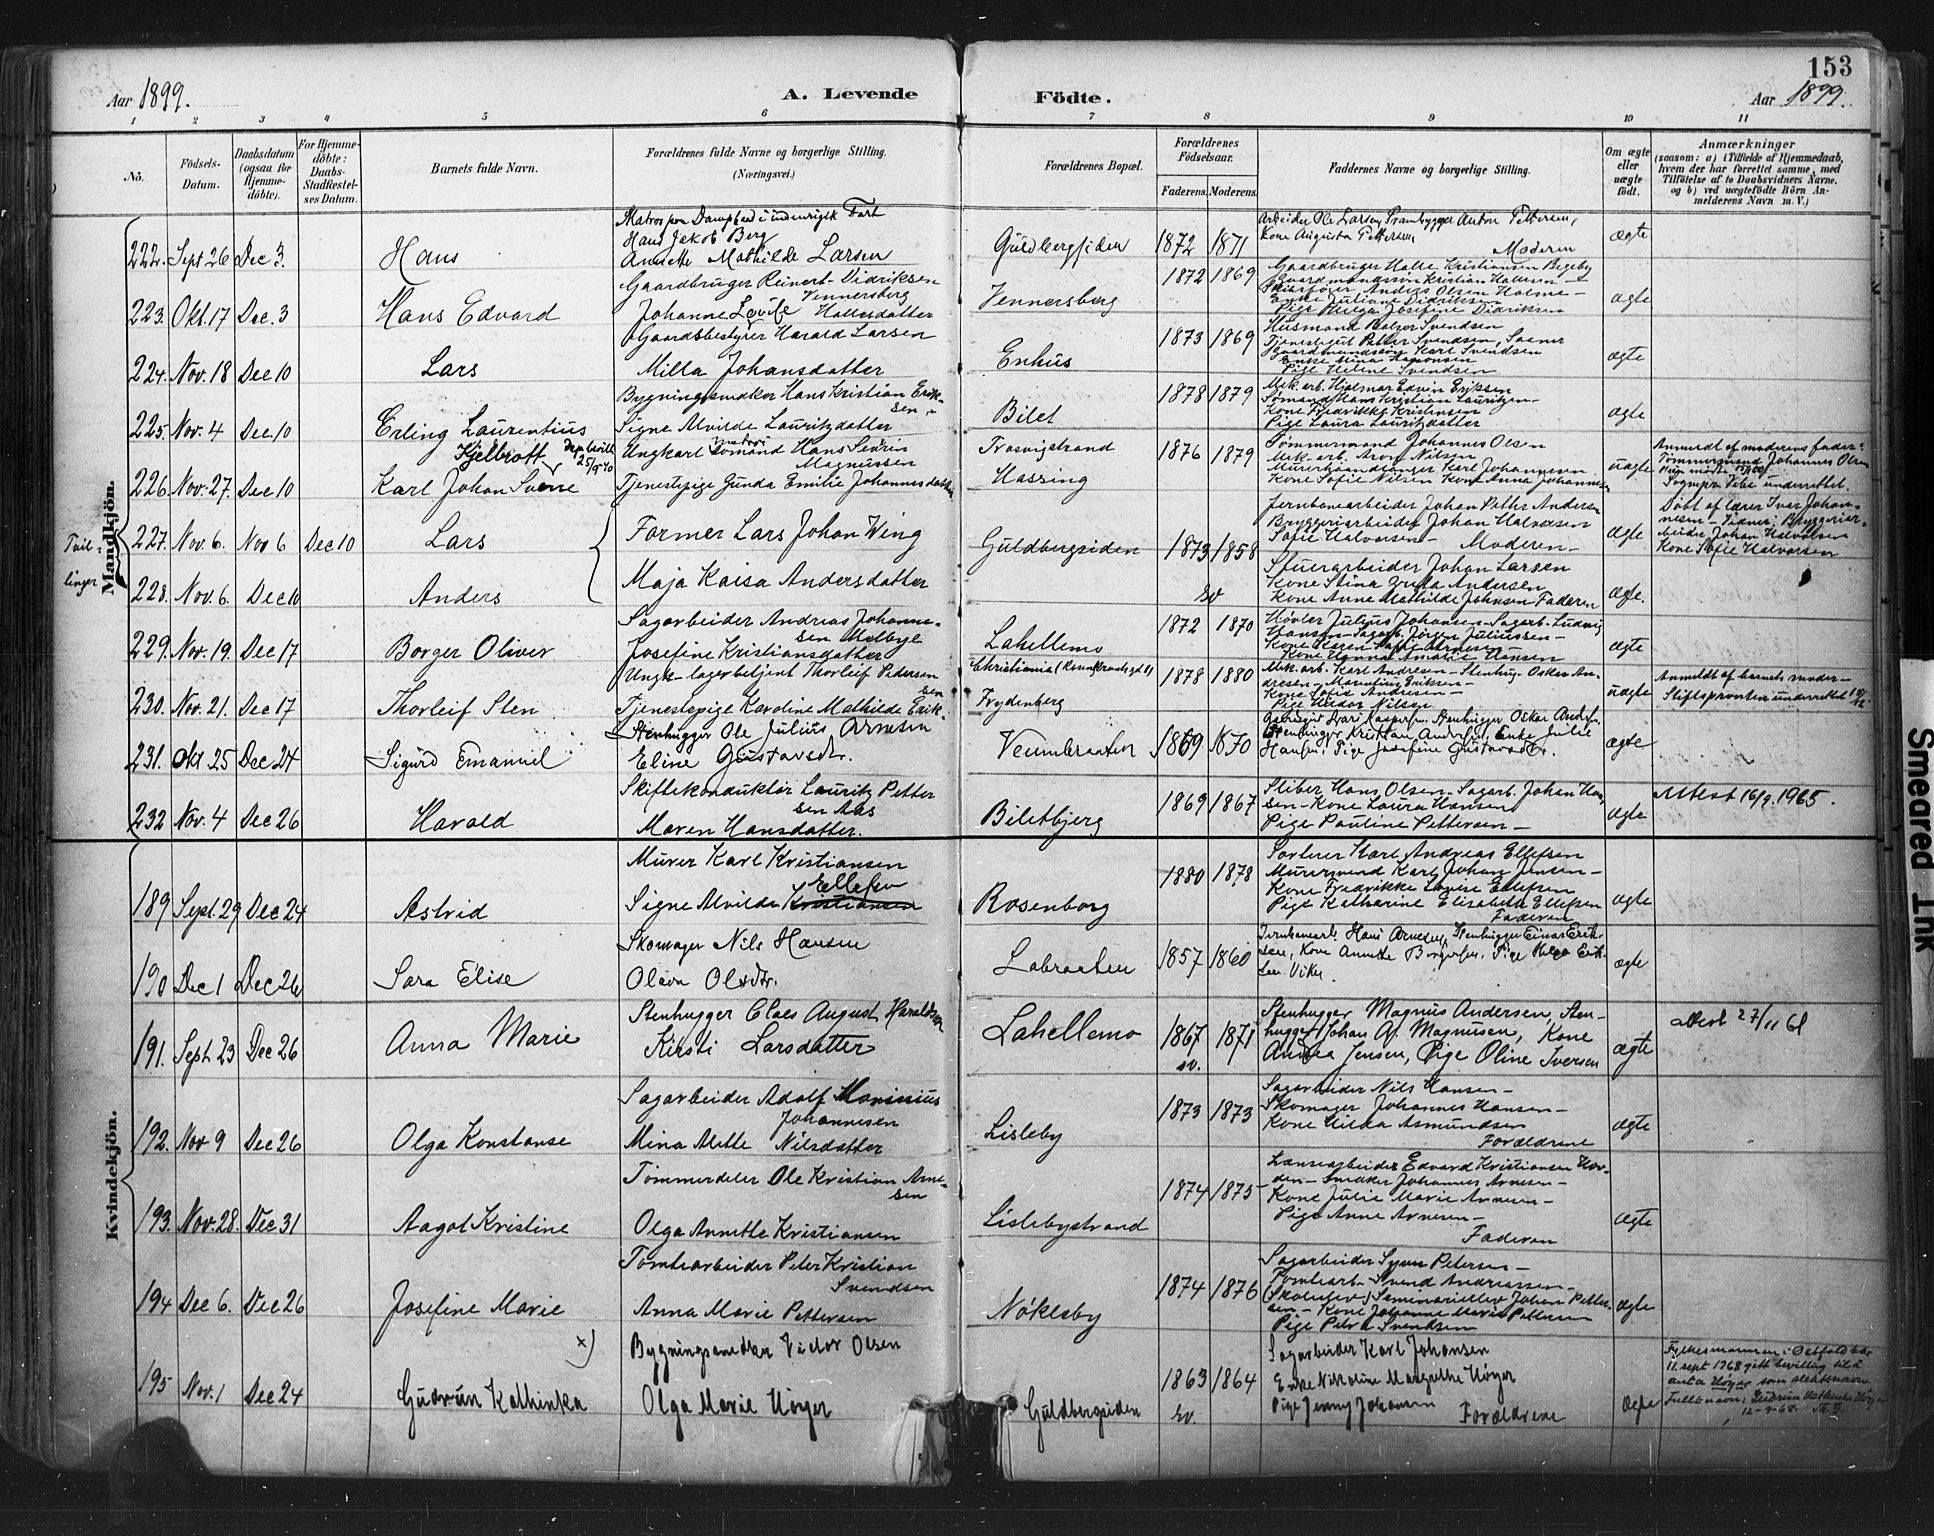 153
Aar 1899.
A. Levende Födte.
Aar 1899.
1 2 3 4 5 6 7 8 9 10 11
No.
Födsels-Datum.
Daabsdatum (ogsaa for Hjemme-döbte).
For Hjemme-döbte: Daabs-Stadfæstel-ses Datum.
Barnets fulde Navn.
Forældrenes fulde Navne og borgerlige Stilling.
(Næringsvei.)
Forældrenes Bopæl.
Forældrenes Födselsaar.
Faderens. Moderens.
Faddernes Navne og borgerlige Stilling.
Om ægte eller uægte födt.
Anmærkninger
(saasom: a) i Tilfælde af Hjemmedaab, hvem der har forrettet samme, med Tilföielse af to Daabsvidners Navne, og b) ved uægtefödte Börn An-melderens Navn m. V.)
Mandkjön.
222. Sept 26 Dec 3. Hans
Hans Jakob Berg
Annette Mathilde Larsen
Guldbergsiden 1872 1871
Arbeider Ole Larsen, Prambygger Anton Pettersen,
Kone Augusta Pettersen,
Moderen
ægte
223. Okt. 17 Dec. 3 Hans Edvard
Gaardbruger Reinert Didriksen
Vennersberg
Johanne Lovise Hallesdatter
Vennersberg 1872 1869
Gaardbruger Halle Kristiansen Bigeby
Gaardmandssøn Kristian Hallesen
Skibsfører Anders Olsen Holme -
Enke Juliane Didriksen
Pige Helga Josefine Didriksen
ægte
224. Nov. 18 Dec 10 Lars
Gaardsbestyrer Harald Larsen
Milla Johansdatter
Enhus 1873 1869
Husmand Balzer Svendsen
Tjenestegut Petter Svendsen, Saaner
Gaardmandssøn Karl Svendsen
Pige Helene Svendsen
ægte
225. Nov. 4 Dec. 10 Erling Laurentius
Bygningssnekker Hans Kristian Erik-
sen -
Signe Alvilde Lauritzdatter
Bilet 1878 1879
Mek. arb. Hjalmar Edvin Eriksen
Sømand Hans Kristian Lauritzen -
Kone Fredrikke Kristensen
Pige Laura Lauritzdatter
ægte
226. Nov. 27. Dec 10 Karl Johan Sverre
Kjelbrott
25/9 40
Ungkarl Sømand Hans Severin
Magnussen
Tjenestepige Gunda Emilie Johannesdatter
Trosvigstrand
Hasring
1876 1879
Tømmermand Johannes Olsen
Mek. arb. Aron Nilsen
Murerhaandlanger Karl Johannesen
Kone Sofie Nilsen Kone Anna Johannesen
uægte
Anmeldt af moderens fader:
Tømmermand Johannes Olsen
Sognepr. Vibe underrettet.
Tvil-
linger
227. Nov. 6. Nov 6 Dec 10 Lars
Former Lars Johan Wing
Guldbergsiden 1873 1858
Jernbanearbeider Johan Petter Andersen
Bryggeriarbeider Johan Halvorsen
Sofie Halvorsen - Moderen -
ægte
Døbt af lærer Ivar Johan-
nesen - Vidner: Bryggeriar-
beider Johan Halvorsen
Kone Sofie Halvorsen
228. Nov. 6. Dec 10 Anders
Maja Kaisa Andersdatter
sv
Stuerarbeider Johan Larsen
Kone Stina Greta Andersen
Kone Anne Mathilde Johnsen Faderen
ægte.
229. Nov. 19. Dec 17 Borger Oliver
Sagarbeider Andreas Johanne-
sen Melbye
Josefine Kristiansdatter
Lahellemo 1872 1870
Høvler Julius Johansen - Sagarb. Ludvig
Hansen - Sagarb. Jørgen Juliussen -
Kone Hanna Amalie Hansen
ægte
230. Nov. 21. Dec 17 Thorleif Sten
Ungk. lagerbetjent Thorleif Pedersen
Tjenestepige Karoline Mathilde Erik-
sen
Christiania
Frydenberg
1878 1880
Mek. arb. Karl Andresen - Stenhug. Oskar An-
dresen - Martinius Eriksen -
Kone Sofie Andresen -
Pige Hilda Nilsen
uægte
Anmeldt af barnets moder -
Stiftsprovsten underrettet
231. Okt 25 Dec 24 Sigurd Emanuel
Stenhugger Ole Julius Arnesen
Eline Gustavsdtr.
Veumbraaten 1869 1870
Stenhugger Oskar Andersen,
Stenhugger Kristian Andersen, Enke Julie
Hansen, Pige Josefine Gustavsdtr.
ægte
232 Nov. 4 Dec 26 Harald
Skiftekonduktør Lauritz Petter-
sen Aas
Maren Hansdatter.
Biletbjerg 1869 1867
Sliber Hans Olsen - Sagarb. Johan Han-
sen - Kone Laura Hansen
Pige Pauline Pettersen -
ægte
Attest 16/9. 1965.
Kvindekjön.
189 Sept. 29 Dec 24 Astrid
Murer Karl Kristiansen
Ellefsen
Signe Alvilde Kristiansen
Rosenborg 1880 1878
Sorterer Karl Andreas Ellefsen
Murermand Karl Johan Jensen -
Kone Fredrikke Lovise Ellefsen
Pige Katharine Elisabeth Ellefsen
Faderen
ægte
190 Dec 1 Dec 26 Sara Elise
Skomager Nils Hansen
Olava Olsdtr.
Labraaten 1857 1860
Jernbanearb. Hans Arnesen, Stenhugger Einar Erik-
sen, Kone Annette Borgersen, Pige Helga Erik-
sen Viker
ægte
191. Sept 23 Dec 26 Anna Marie
Stenhugger Claes August Haraldsson
Kirsti Larsdatter
Lahellemo 1867 1871
sv.
Stenhugger Magnus Andersen, Sten-
hugger Johan A. Magnusen, Kone
Andrea Jensen, Pige Oline Iversen
ægte
Attest 27/11 61
192. Nov 9 Dec 26 Olga Konstanse
Sagarbeider Adolf Marinius
Johannesen
Mina Alette Nilsdatter
Lisleby 1873 1873
Sagarbeider Nils Hansen -
Skomager Johannes Hansen -
Kone Hilda Asmundsen
Forældrene
ægte
193. Nov. 28. Dec 31 Aagot Kristine
Tømmerdeler Ole Kristian Arne-
sen
Olga Annette Kristiansen
Lislebystrand 1874 1875
Lænsearbeider Edvard Kristiansen Hov-
den - Snekker Johannes Arnesen -
Kone Julie Marie Arnesen -
Pige Anne Arnesen -
Faderen
ægte
194 Dec 6. Dec 26 Josefine Marie
Tomtearbeider Peter Kristian
Svendsen
Anna Marie Pettersen
Nøkleby 1874 1876
Sagarbeider Syver Petersen -
Tomtearb. Svend Andreassen -
(Skoleelev) Seminarieelev Johan Petter-
sen - Kone Johanne Marie Pettersen
Pige Petra Svendsen
ægte
195 Nov. 1 Dec 24 Gudrun Kathinka x)
Bygningssnedker Victor Olsen
Olga Marie Høyer
Guldbergsiden 1863 1864
sv.
Sagarbeider Karl Johansen
Enke Nikoline Margrethe Høyer
Pige Jenny Johansen Forældrene
ægte
Fylkesmannen i Østfold har
11. sept 1968 gitt bevilling til å
anta Høyer som slektsnavn.
Fullt navn: Gudrun Kathinka Høyer
12-9-68.
Smeared Ink